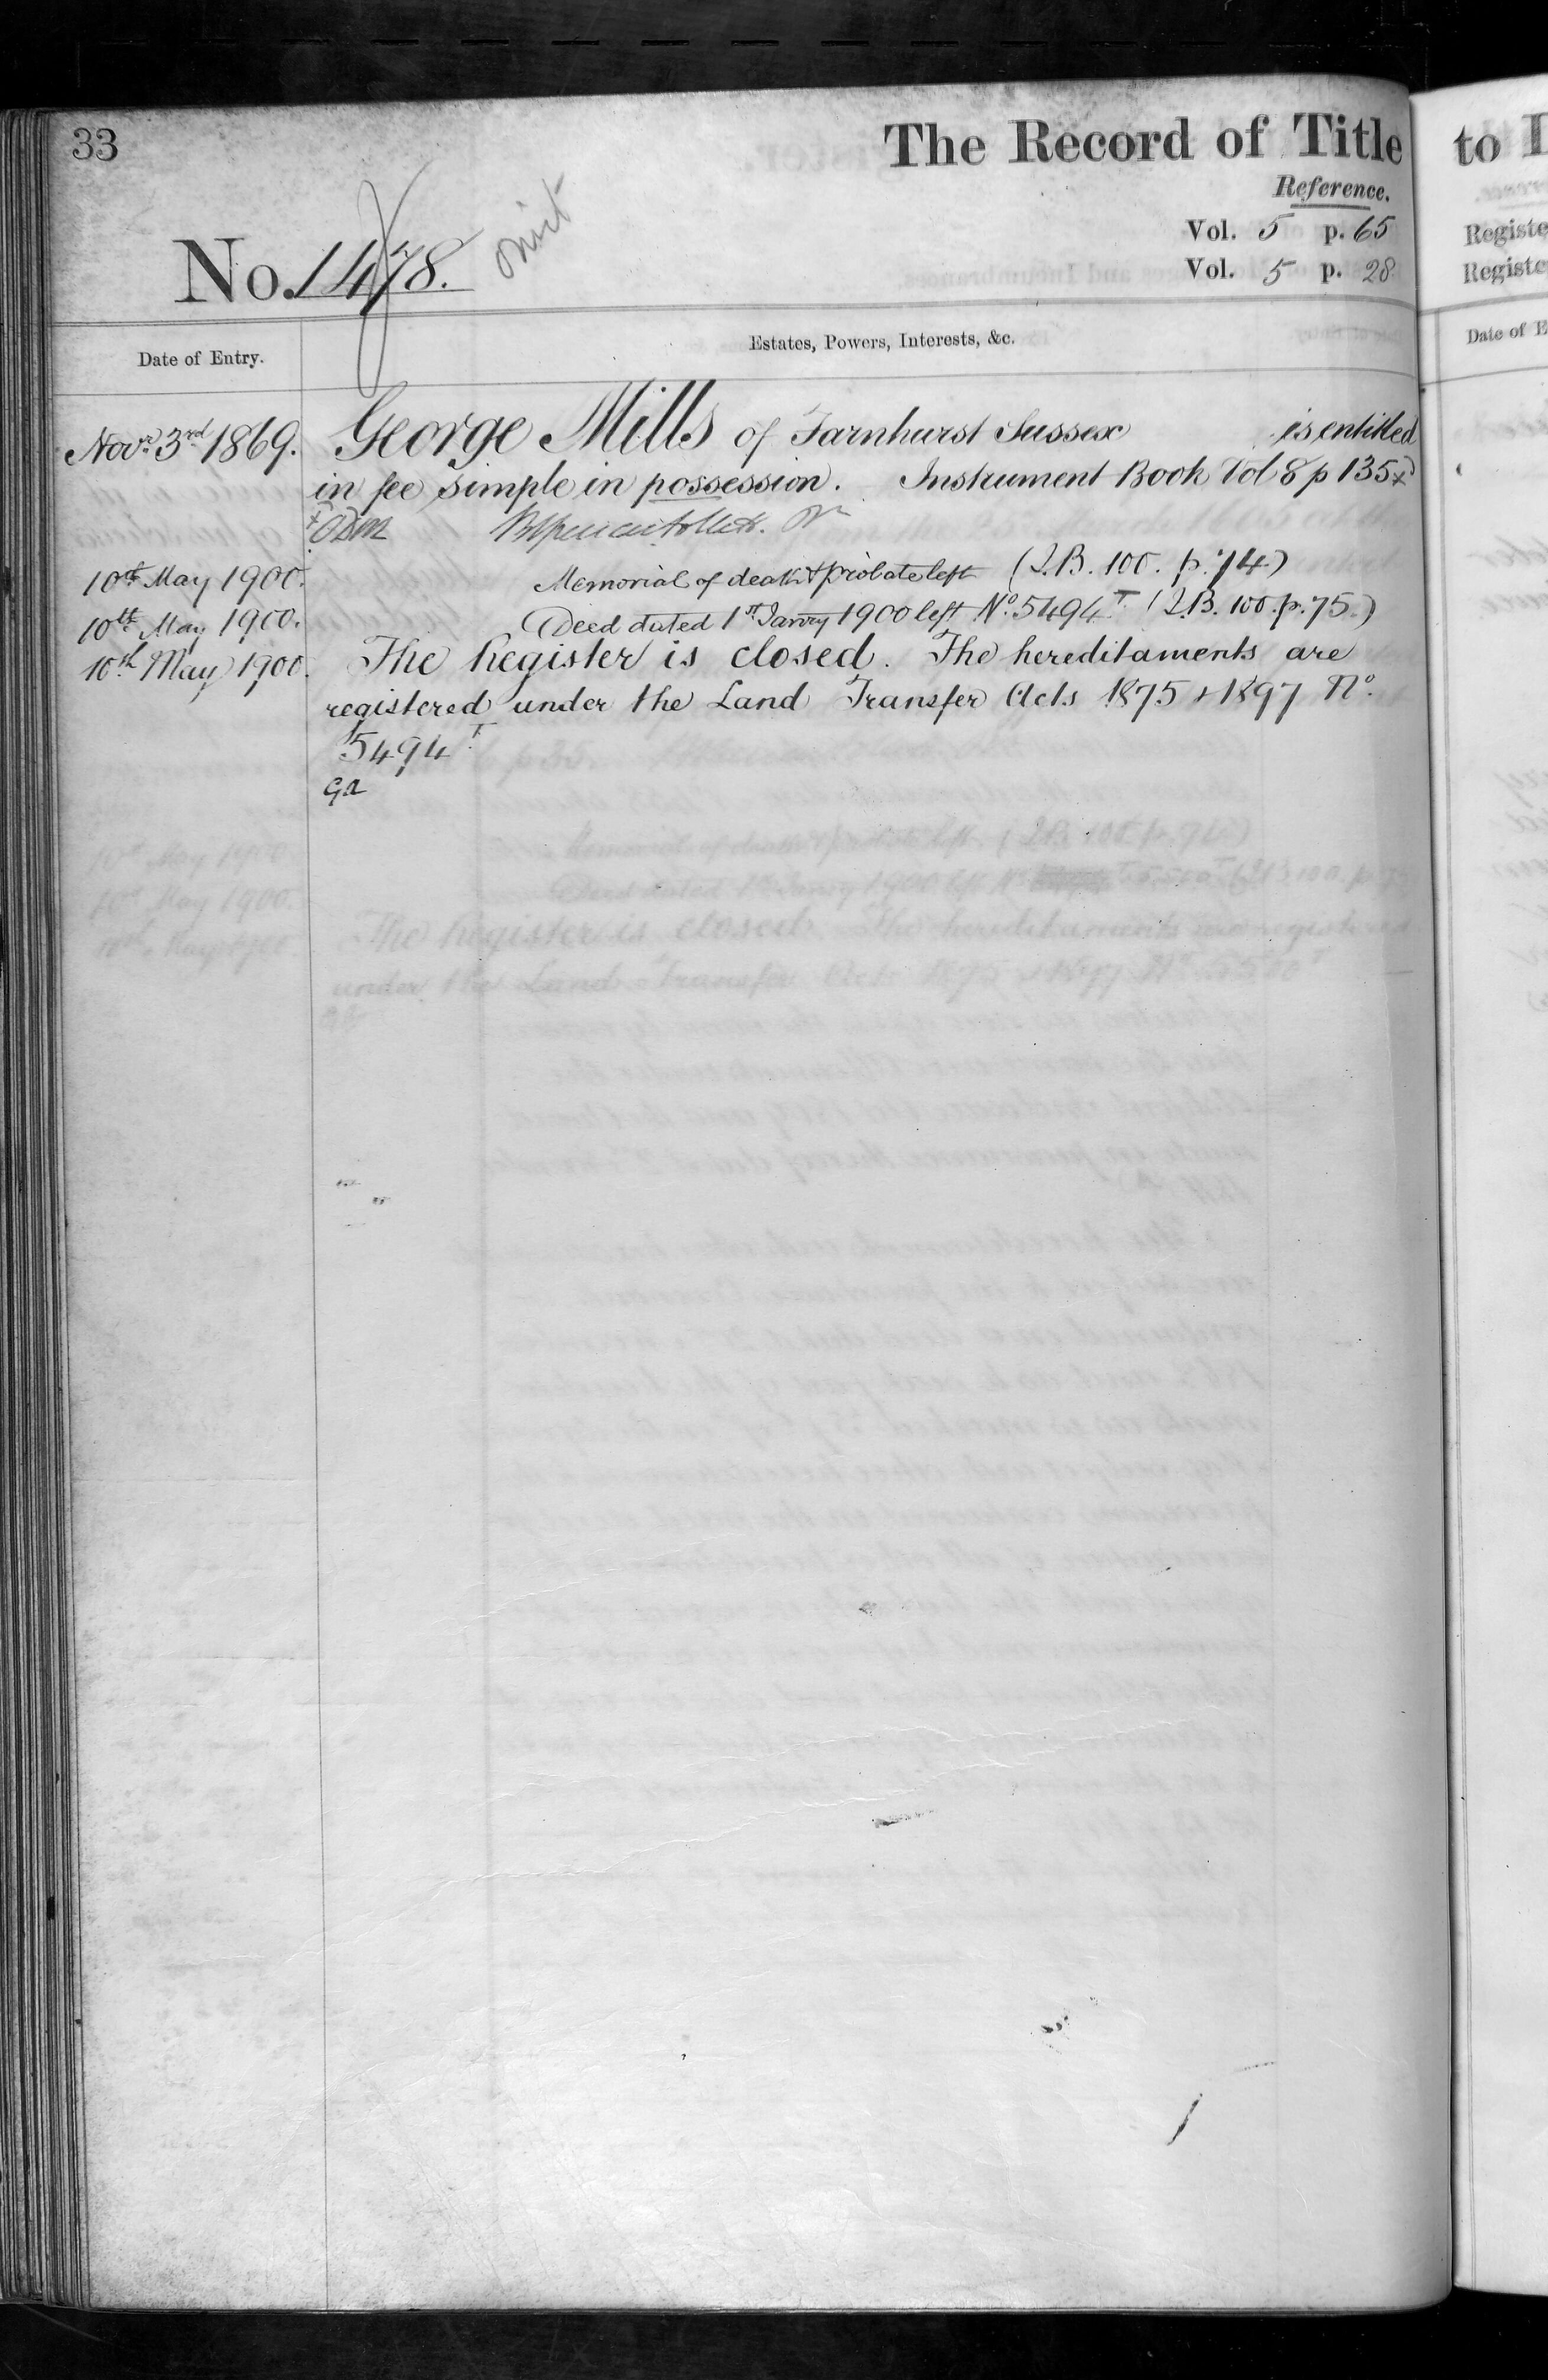 33
The Record of Title
Reference.
Vol. 5 p. 65
Vol. 5 p. 28
No. 1478.
omit
Date of Entry.
Estates, Powers, Interests, &c.
Novr. 3rd 1869. George Mills of Farnhurst Sussex is entitled
in fee simple in possession. Instrument Book Vol 8 p 135 x
10th May 1900. Memorial of death & probate left (I.B. 100. p. 74)
10th May 1900. Deed dated 1st Janry 1900 left No. 5494 T. (I.B. 100. p. 75.)
10th May 1900. The Register is closed. The hereditaments are
registered under the Land Transfer Acts 1875 & 1897 No.
5494 T.
to
Registe
Registe
Date of E